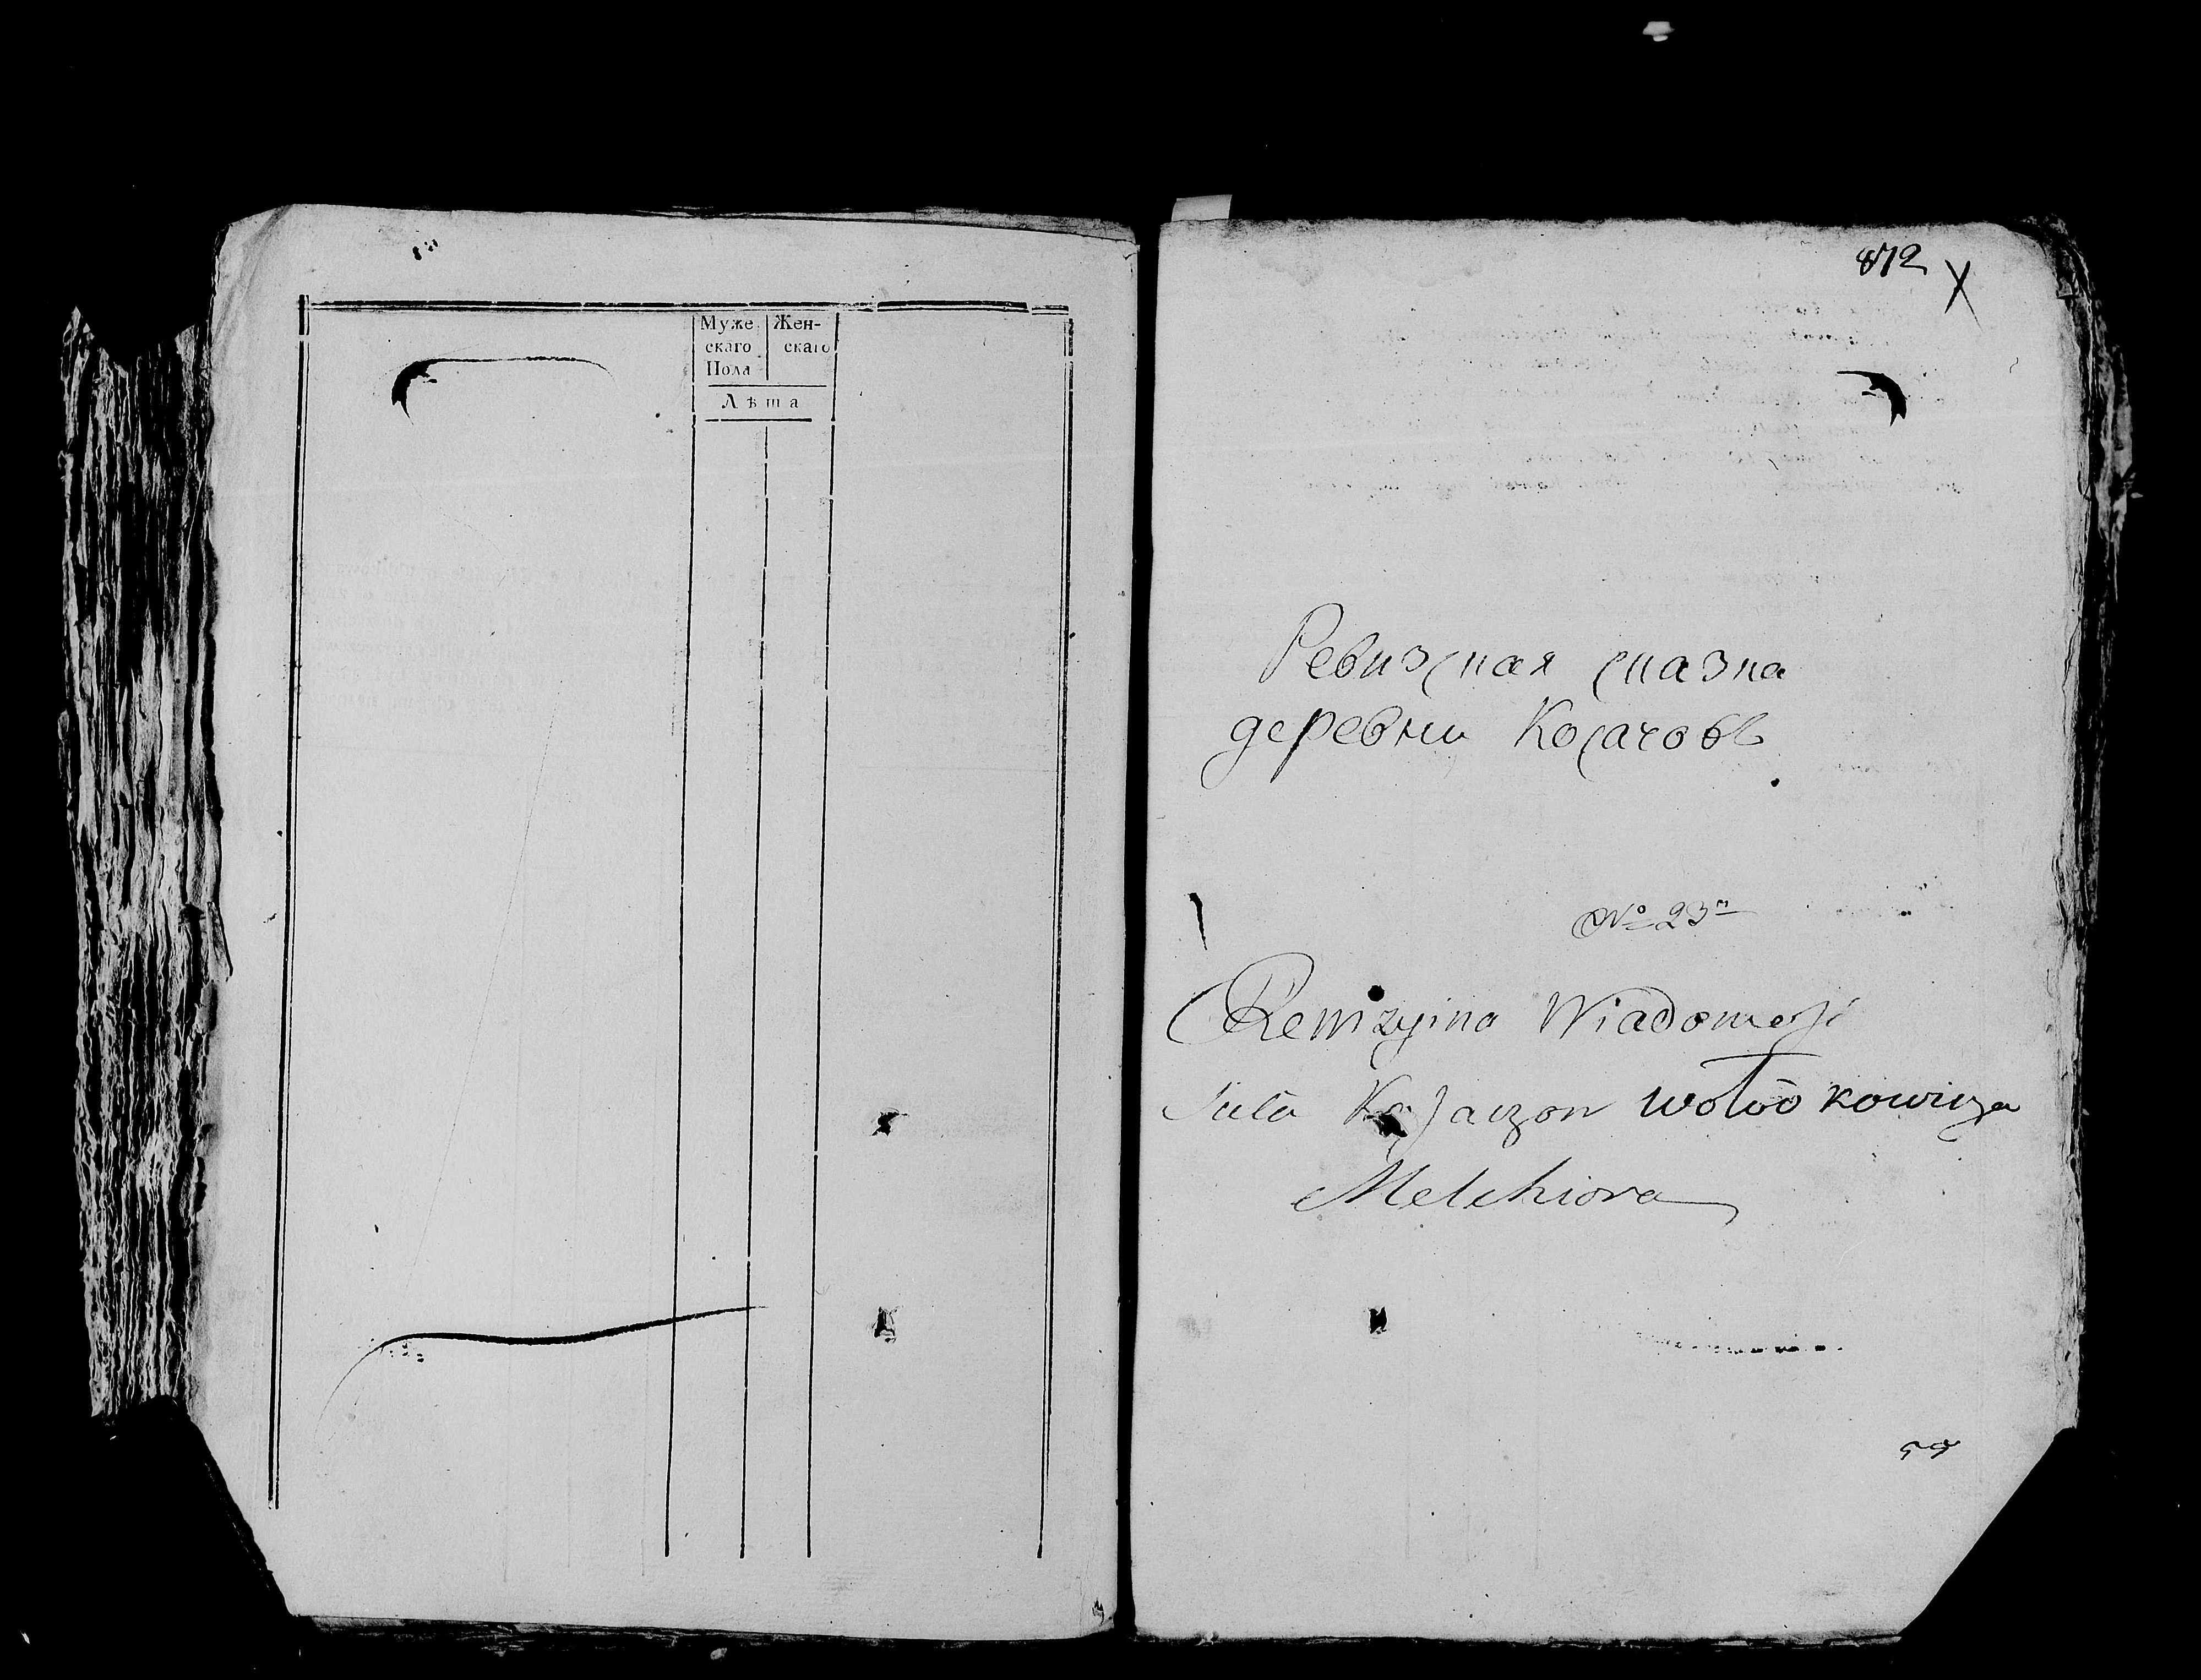 Муже Жен-
скаго скаго
Пола
Лѣта
872 X
Ревизская сказка
деревни Косачовъ
№ 23
Rewizyina Wiadomość
Siła Kosaczow Wołodkowicza
Melchiora